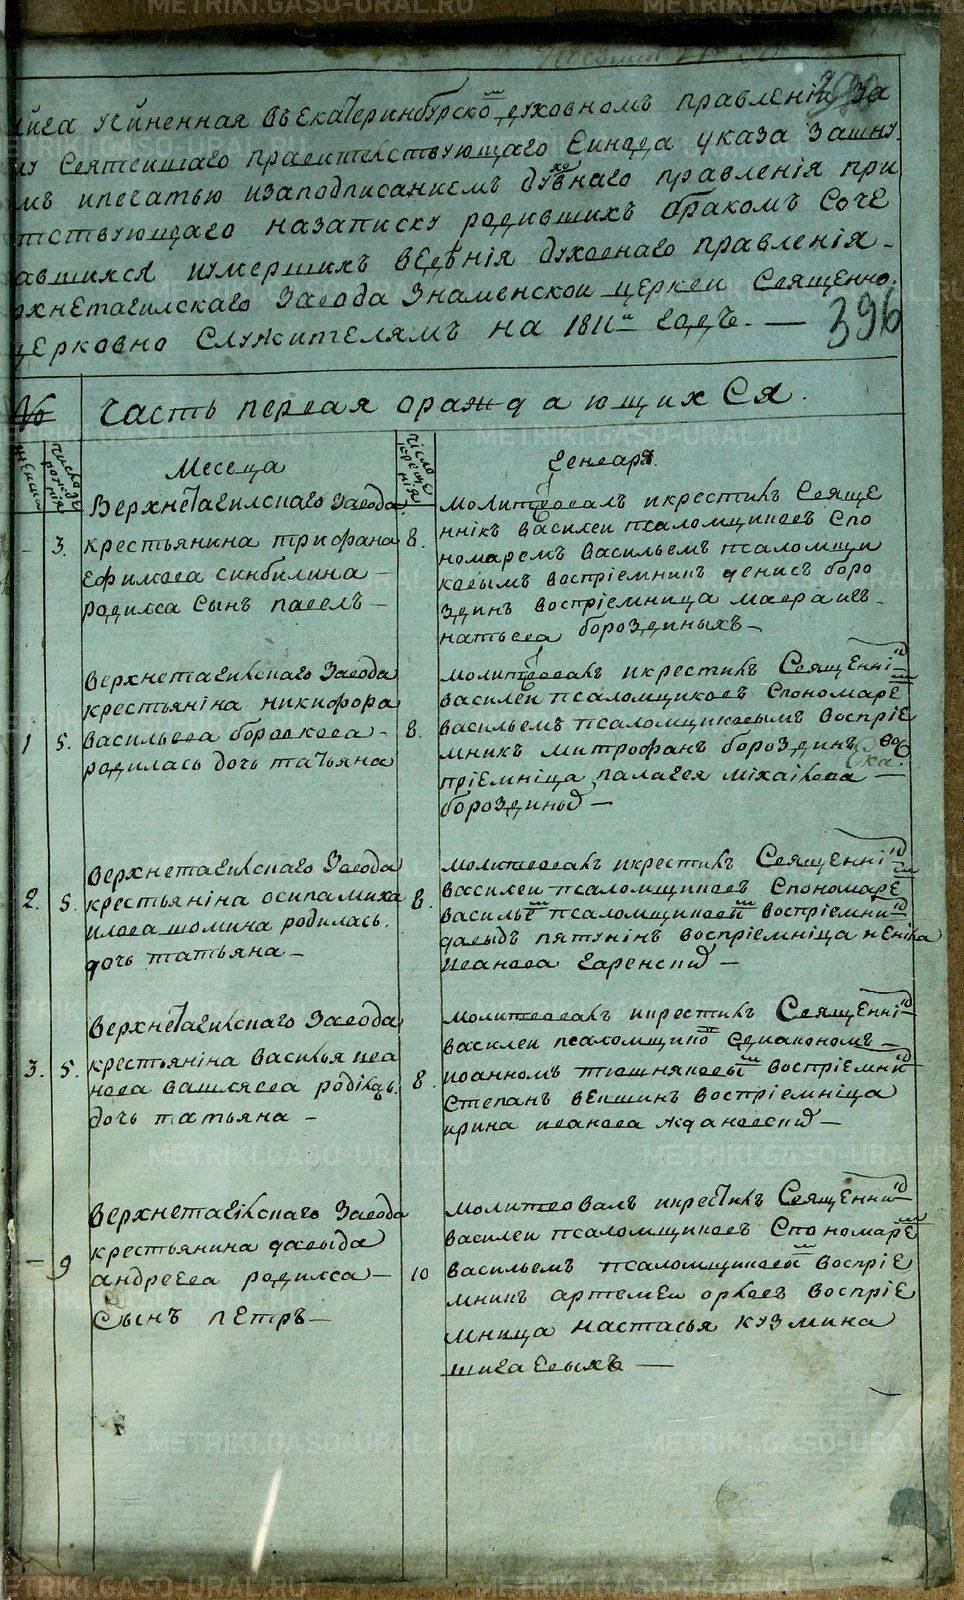 книга учиненная въ Екатеринбурско духовномъ правленіи за
святейшаго правителствующаго Синода указа зашну
мъ ипечатью изаподписаниемъ духовнаго правленія при
тствующаго назаписку родившихъ бракомъ соче
авшихся иумершихъ вѣденія духовнаго правленія
рхнетагилскаго завода Знаменской церкви священно
церковно служителямъ на 1811й годъ. —
396
№ Часть первая оражда ющихся.
Месеца
Генваря.
Верхнетагилскаго завода
- 3. крестьянина трифана 8.
Ефимова синбилина —
родился сынъ павелъ —
молитвовалъ икрестилъ Свяще
ннікъ василеи псаломщиковъ спо
номаремъ васильемъ псаломщи
ковымъ воспріемникъ денисъ боро
здинъ воспріемница мавра иг
натьева бороздиныхъ —
Верхнетагилскаго завода
крестьяніна никифора
1 5. васильева боровкова - 8.
родилась дочь татьяна
молитвовалъ икрестилъ Священні
василеи псаломщиковъ спономаре
васильемъ псаломщиковымъ воспріе
мникъ митрофанъ бороздинъ вос
пріемніца палагея міхаілова —
бороздиных —
Верхнетагилскаго завода
2. 5. крестьяніна осипа миха 8.
илова шомина родилась
дочь татьяна —
молитвовалъ икрестилъ Священні
василеи псаломщиковъ спономаре
василье псаломщиковы воспріемни
давыдъ пятунінъ воспріемніца
иванова
Верхнетагилскаго завода
3. 5. крестьяніна василья ива 8.
нова вашляева роділась
дочь татьяна —
молитвовалъ икрестилъ Священні
василеи псаломщико здиакономъ —
иоанномъ тюшняковы воспріемни
степанъ векшинъ воспріемніца
ирина иванова ждановских —
Верхнетагілскаго завода
— 9 крестьянина давыда 10
андреева родился —
сынъ петръ —
молитвовалъ икрестилъ Священни
василеи псаломщиковъ спономаре
васильемъ псаломщиковы воспріе
мникъ артемеи орловъ воспріе
мница настасья кузмина
шигаевыхъ —
METRIKI.GASO-URAL.RU